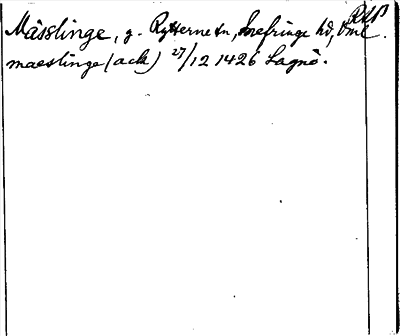 RAP
Mässlinge, g. Rytterne sn, Snefringe hd, Vml.
maeslinge (ack) 27/12 1426 Lagnö.